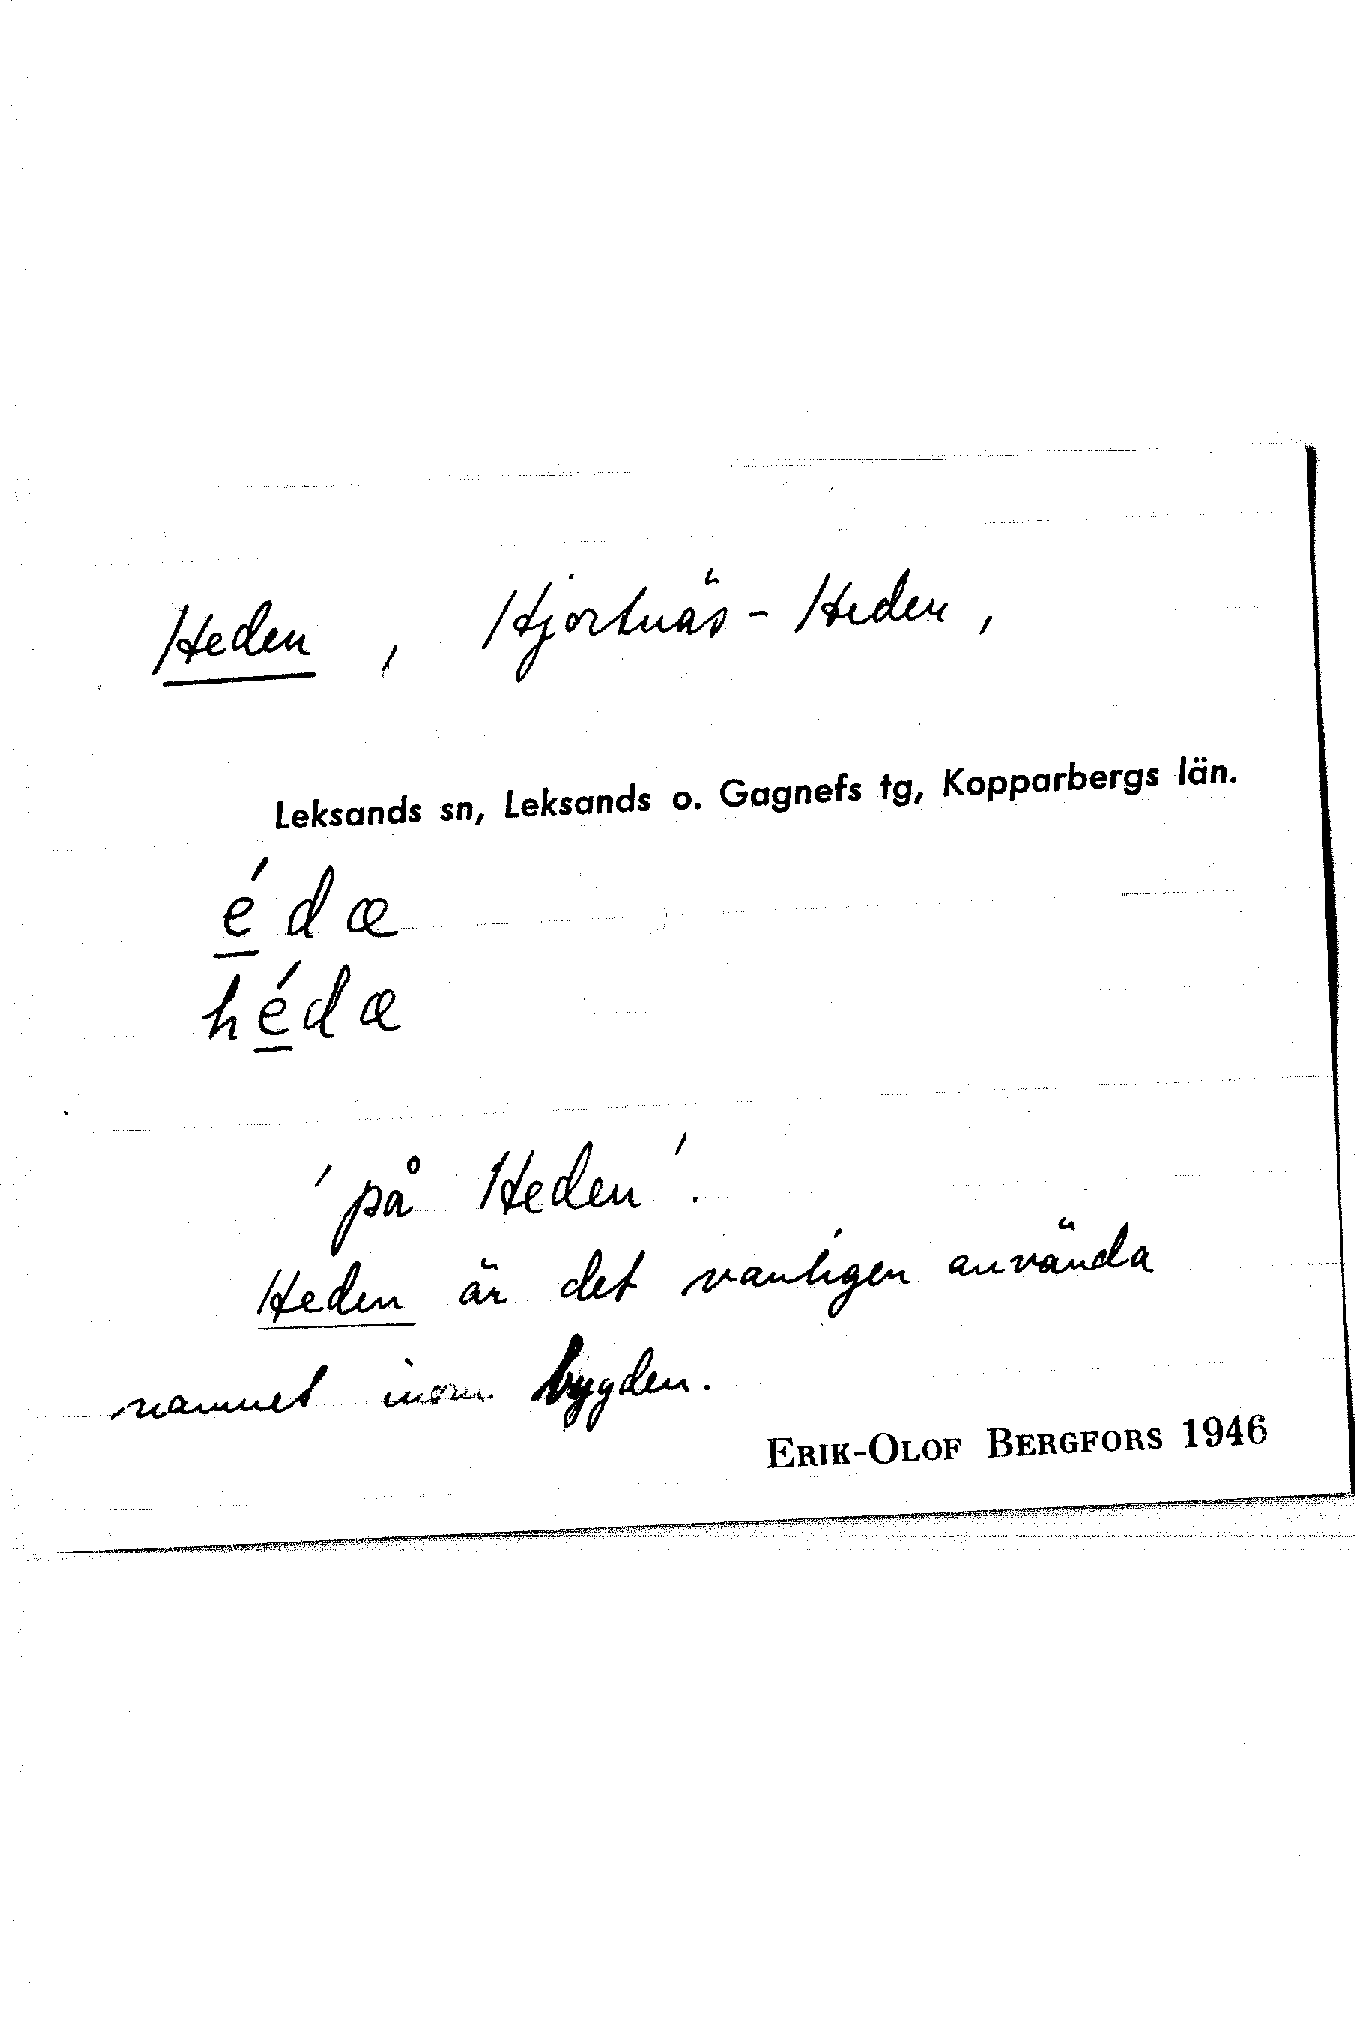 Heden, Hjortnäs-Heden,
Leksands sn, Leksands o. Gagnefs tg, Kopparbergs län.
é̱dæ
hé̱dæ
'på Heden'.
Heden är det vanligen använda
namnet inom bygden.
ERIK-OLOF BERGFORS 1946